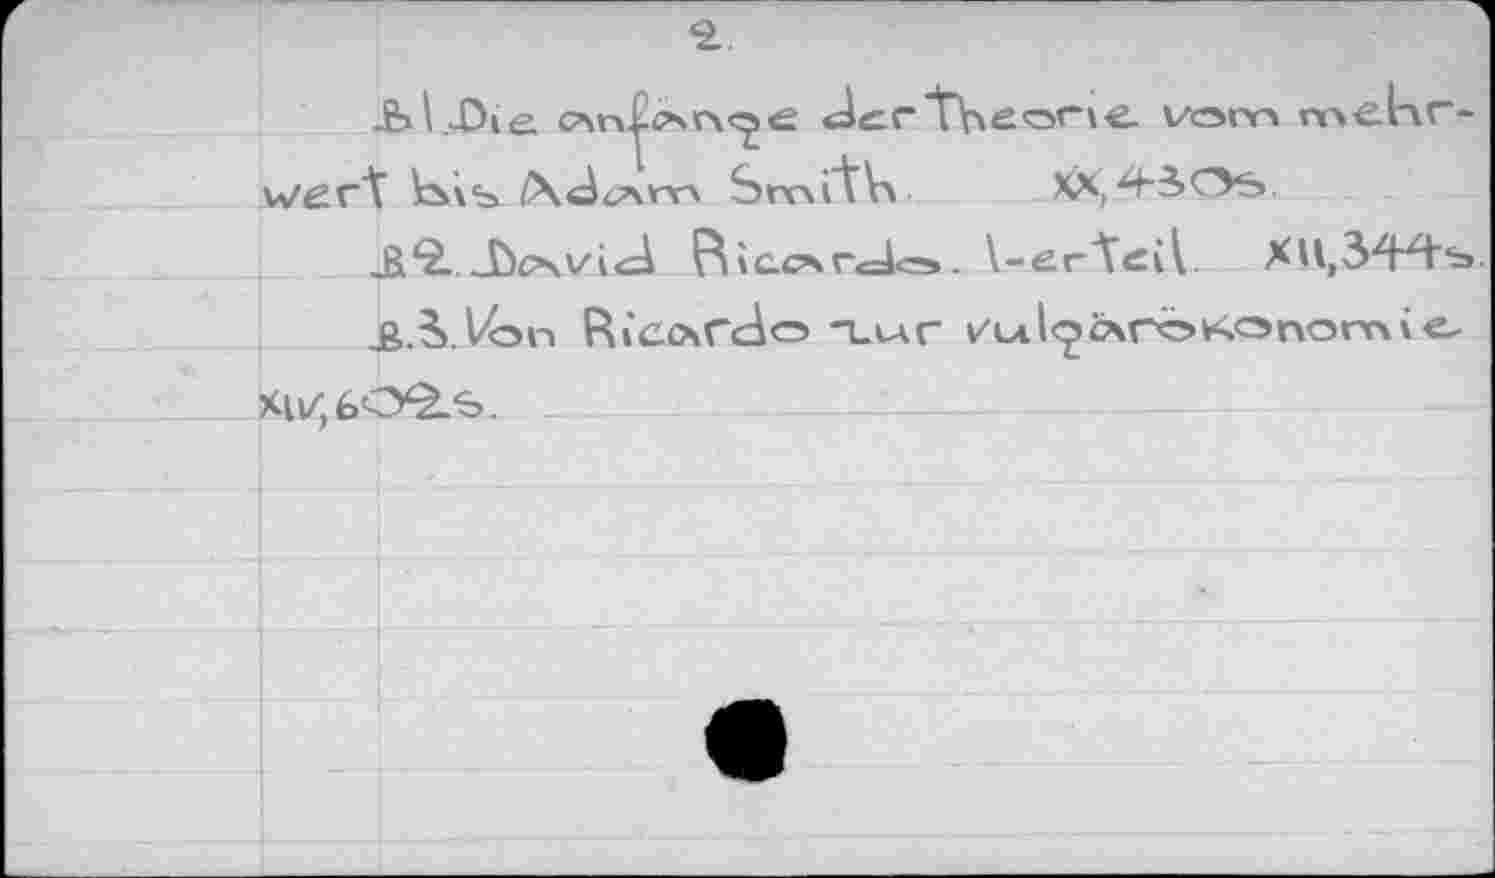 2.
B.1.Die anfange der Theorie vom mehr-
wert bis Adam Smith. XX,430s.
B.2. David Ricardo. 1-er Teil. XII,344s.
B.3. Von Ricardo zur vulgärökonomie
XIV,602s.